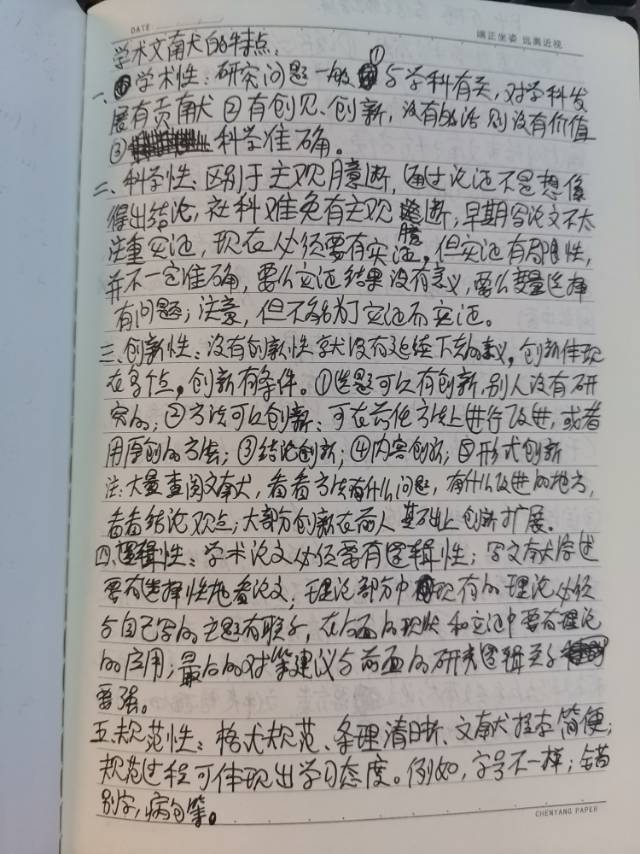 DATE
端正坐姿 远离近视
学术文献的特点
一、学术性：研究问题一般①与学科有关，对学科发
展有贡献 ②有创见、创新，没有的话则没有价值
③科学准确。
二、科学性：区别于主观臆断，通过论证不是想像
得出结论，社科难免有主观臆断，早期写论文不太
注重实证，现在必须要有实证，但实证有局限性，
并不一定准确，要么实证结果没有意义，要么变量选择
有问题；注意，但不能为了实证而实证。
三、创新性：没有创新性就没有延续下去的意义，创新体现
在多个点，创新有条件。①选题可以有创新，别人没有研
究的；②方法可以创新：可在前他方法上进行改进，或者
用原创的方法；③结论创新；④内容创新；⑤形式创新
注：大量查阅文献，看看方法有什么问题，有什么改进的地方，
看看结论观点；大部分创新在前人基础上创新扩展。
四、逻辑性：学术论文必须要有逻辑性；写文献综述
要有选择性地看论文，理论部分中现有的理论必须
与自己写的主题有联系，在后面的现状和实证中要有理论
的应用；最后的对策建议与前面的研究逻辑关系
要强。
五、规范性：格式规范、条理清晰、文献投本简便；
规范过程可体现出学习态度。例如，字号不一样；错
别字，病句等。
CHENYANG PAPER